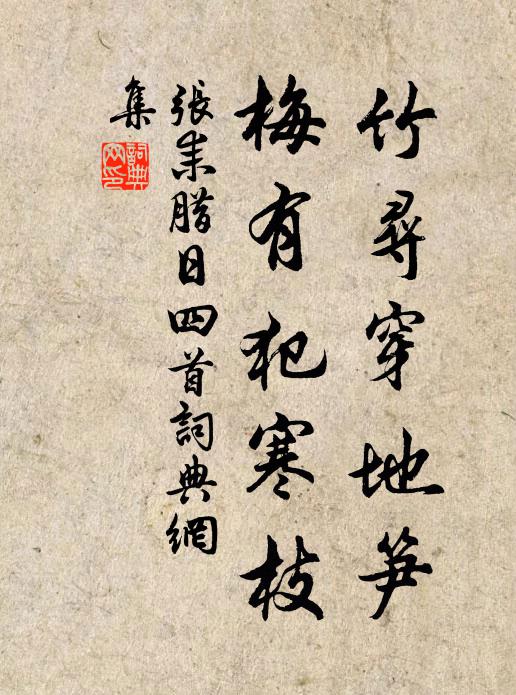 竹尋穿地笋
梅有犯寒枝
張耒腊日四首詞典網
集
詞典
网印